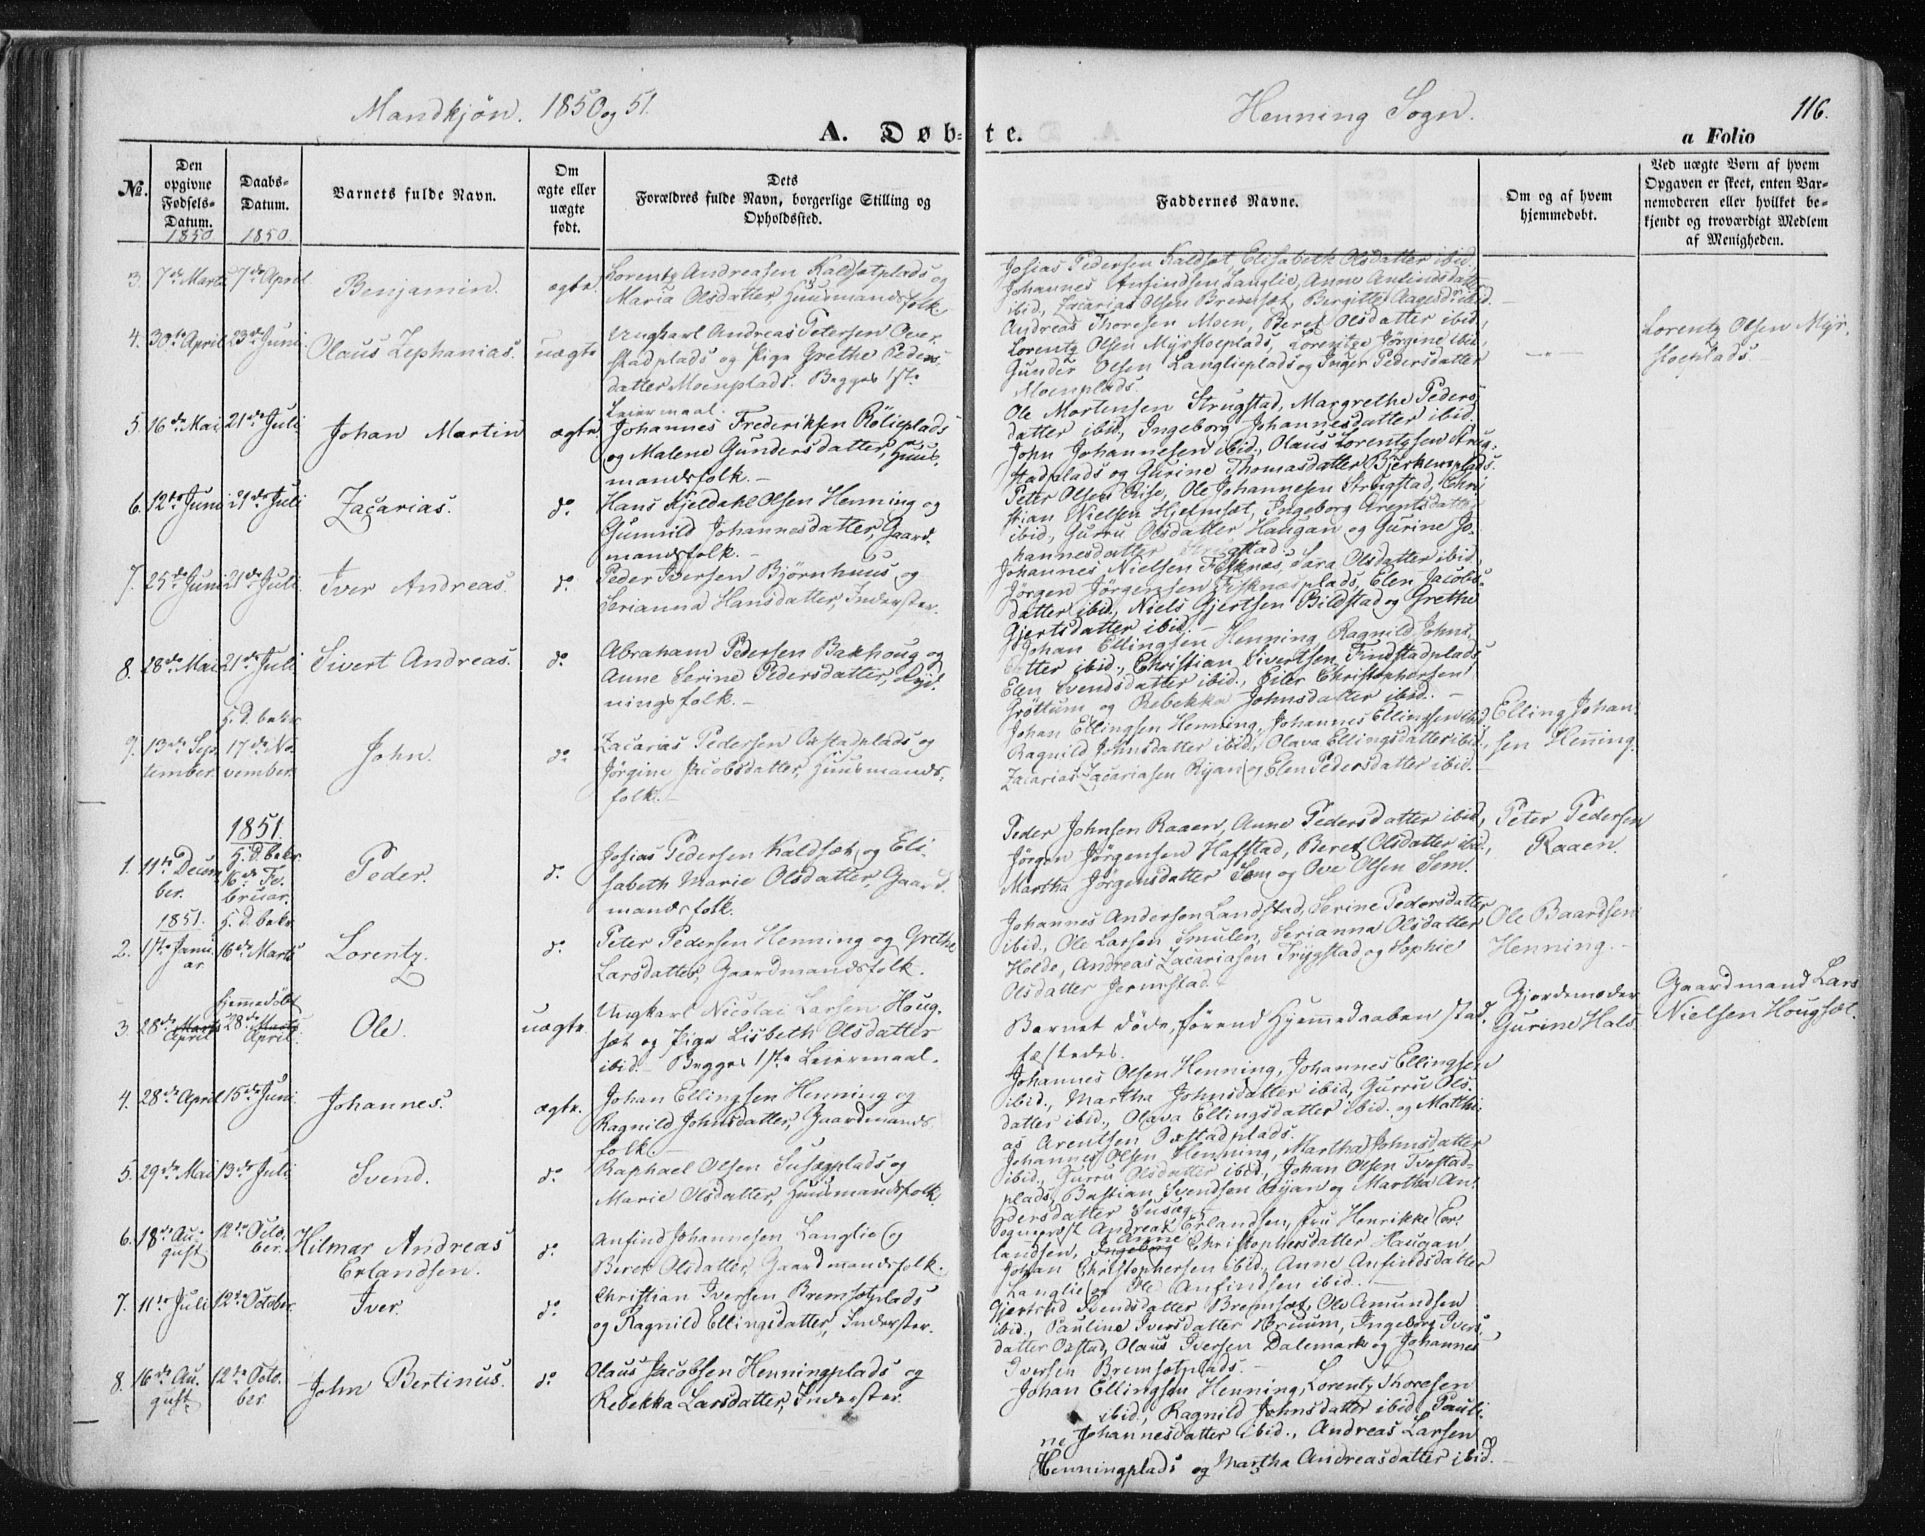 Mandkjøn. 1850 og 51.
Henning Sogn.
116.
A. Døb-te.
a Folio
No.
Den opgivne Fødsels-Datum.
Daabs-Datum.
Barnets fulde Navn.
Om ægte eller uægte født.
Dets Forældres fulde Navn, borgerlige Stilling og Opholdssted.
Faddernes Navne.
Om og af hvem hjemmedøbt.
Ved uægte Børn af hvem Opgaven er skeet, enten Barnemoderen eller hvilket bekjendt og troværdigt Medlem af Menigheden.
1850
1850
3. 7de Marts 7de April Benjamin. ægte.
Lorentz Andreasen Kaldsetplads og
Maria Olsdatter, Huusmandsfolk
Josias Pedersen Kaldset, Elisabeth Olsdatter ibid,
Johannes Anfindsen Langlie, Anne Anfindsdatter
ibid, Zacarias Olsen Bremset, Birgitte Aagesdr ibid.
4. 30te April 23de Juni Olaus Zephanias. uægte
Ungkarl Andreas Petersen Over-
stadplads og Pige Grethe Peders-
datter Moenplads. Begges 1ste
Leiermaal.
Andreas Thoresen Moen, Beret Olsdatter ibid,
Lorentz Olsen Myrstoeplads, Lorentze Jørgine ibid,
Gunder Olsen Langlieplads og Inger Pedersdatter
Moenplads.
Lorentz Olsen Myr-
stoeplads.
5. 16de Mai 21de Juli Johan Martin ægte
Johannes Frederiksen Rølieplads
og Malene Gundersdatter, Huus-
mandsfolk.-
Ole Mortensen Strugstad, Margrethe Peders-
datter ibid, Ingeborg Johannesdatter ibid,
John Johannesen ibid., Olaus Lorentzsen Strug-
stadplads og Gurine Thomasdatter Bjerkemplads.
6. 12te Juni 21de Juli Zacarias. do.
Hans Kjeldahl Olsen Henning og
Gunnild Johannesdatter, Gaard-
mandsfolk.-
Peter Olsen Rise, Ole Johannesen Strugstad, Chri-
stian Nielsen Hjelmset, Ingeborg Arentsdatter
ibid, Gurru Olsdatter Haugan og Gurine Jo-
hannesdatter Strugstad
7. 25de Juni 21de Juli Iver Andreas. do.
Peder Iversen Bjørnhuus og
Serianna Hansdatter, Inderster.
Johannes Nielsen Fisknes, Sara Olsdatter ibid,
Jørgen Jørgensen Fisknesplads, Elen Jacobs-
datter ibid, Niels Gjertsen Bildstad og Grethe
Gjertsdatter ibid.-
8. 28de Mai 21de Juli Sivert Andreas. do.
Abraham Pedersen Bakhoug og
Anne Serine Pedersdatter, Ryd-
ningsfolk.-
Johan Ellingsen Henning, Ragnild Johns-
datter ibid., Christian Sivertsen Findstadplads,
Elen Svendsdatter ibid., Eiler Christophersen
Grøttum og Rebekka Johnsdatter ibid.-
9. 13de Sep-
tember. H. D. bekr. 17de No-
vember. John. do
Zacarias Pedersen Oxstadplads og
Jørgine Jacobsdatter, Huusmands-
folk.-
Johan Ellingsen Henning, Johannes Ellingsen ibid,
Ragnild Johnsdatter ibid, Olava Ellingsdatter ibid.,
Zacarias Zacariasen Ryan og Elen Pedersdatter ibid.-
Elling Johan-
sen Henning.
1851.
1. 11te Decem-
ber. H. D. bekr. 16de Fe-
bruar. Peder. do.
Josias Pedersen Kaldset og Eli-
sabeth Marie Olsdatter, Gaard-
mandsfolk.
Peder Johnsen Raaen, Anne Pedersdatter ibid,
Jørgen Jørgensen Haffstad, Beret Olsdatter ibid,
Martha Jørgensdatter Sem og Ove Olsen Sem.
Peter Pedersen
Raaen.
1851.
2. 1ste Janu-
ar H. D. bekr. 16de Marts Lorentz. do.
Peter Pedersen Henning og Grethe
Larsdatter, Gaardmandsfolk.
Johannes Andersen Landstad, Serine Pedersdatter
ibid., Ole Larsen Smulen, Serianna Olsdatter
Holde, Andreas Zacariasen Trygstad og Sophie
Olsdatter Jermstad.
Ole Baardsen
Henning.-
3 28de Marts April Hjemmedøbt 28de Marts April. Ole. uægte.
Ungkarl Nicolai Larsen Houg-
set og Pige Lisbeth Olsdatter
ibid.- Begges 1ste Leiermaal.
Barnet døde, førend Hjemmedaaben stad-
fæstedes.
Gjordemoder
Gurine Hals
Gaardmand Lars
Nielsen Hougset.
4. 28de April 15de Juni. Johannes. ægte.
Johan Ellingsen Henning og
Ragnild Johnsdatter, Gaardmands-
folk.-
Johannes Olsen Henning, Johannes Ellingsen
ibid., Martha Johnsdatter ibid, Gurru Ols-
datter ibid., Olava Ellingsdatter ibid. og Matthi-
as Arentsen Oxstadplads.
5. 29de Mai 13de Juli Svend. do.
Raphael Olsen Susægplads og
Marie Olsdatter, Huusmandsfolk
Johannes Olsen Henning, Martha Johnsdatter
ibid., Gurru Olsdatter ibid, Johan Olsen Tvestad-
plads, Bastian Svendsen Ryan og Martha An-
dersdatter Susæg.
6. 18de Au-
gust 12te Octo-
ber. Hilmar Andreas
Erlandsen. do.
Anfind Johannesen Langlie og
Beret Olsdatter, Gaardmandsfolk.
Sognepræst Andreas Erlandsen, Fru Henrikke Er-
landsen, Ingeborg Anne Christophersdatter Haugan
Johan Christophersen ibid, Anne Anfindsdatter
Langlie og Ole Anfindsen ibid.-
7. 11te Juli 12te October. Iver. do.
Christian Iversen Bremsetplads
og Ragnild Ellingsdatter, Inderster.
Gjertrud Svendsdatter Bremset, Ole Amundsen
ibid., Pauline Iversdatter Bruum, Ingeborg Ivers-
datter Oxstad, Olaus Iversen Dalemark og Johannes
Iversen Bremsetplads.-
8. 16de Au-
gust 12te Octo-
ber. John Bertinus. do
Olaus Jacobsen Henningplads og
Rebekka Larsdatter, Inderster.
Johan Ellingsen Henning, Lorentz Thoresen
ibid., Ragnild Johnsdatter ibid, Pauli-
ne Johannesdatter ibid., Andreas Larsen
Henningplads og Martha Andreasdatter ibid.-